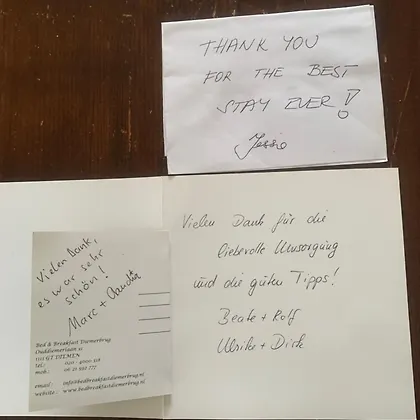 THANK YOU
FOR THE BEST
STAY EVER!
Jessie
Vielen Dank für die
liebevolle Umsorgung
und die guten Tipps!
Beate + Rolf
Ulrike + Dirk
Vielen Dank,
es war sehr
schön!
Marc + Claudia
Bed & Breakfast Diemerbrug
Ouddiemerlaan
1111 GT DIEMEN
tel.:
mob.:
email: info@bedbreakfastdiemerbrug.nl
website: www.bedbreakfastdiemerbrug.nl